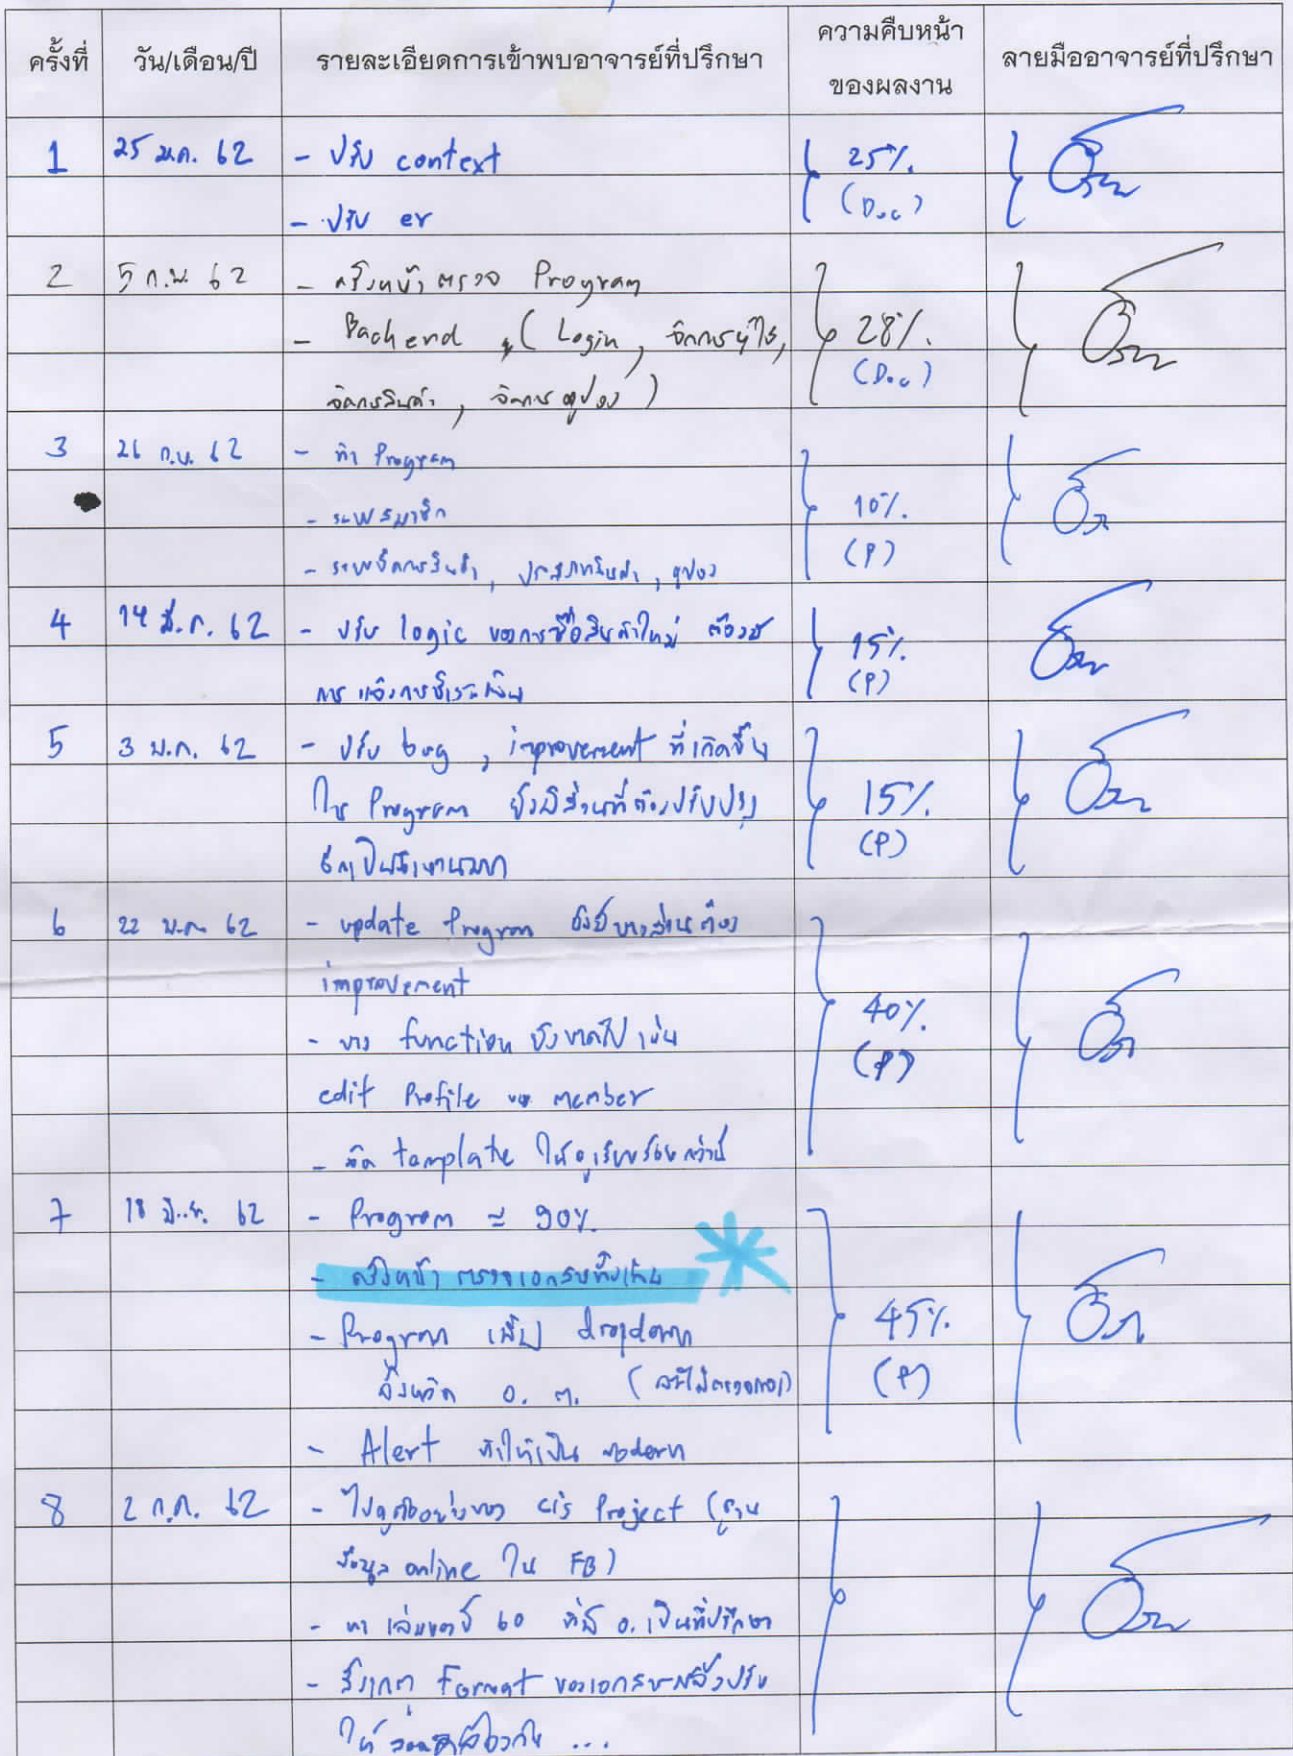 ครั้งที่ วัน/เดือน/ปี รายละเอียดการเข้าพบอาจารย์ที่ปรึกษา ความคืบหน้า ลายมืออาจารย์ที่ปรึกษา
ของผลงาน
1 25 ม.ค. 62 - ปรับ context 25%.
- ปรับ er (Doc)
2 5 ก.พ. 62 - ครั้งหน้าตรวจ Program
- Backend (Login, จัดการผู้ใช้, 28%.
จัดการสินค้า, จัดการคูปอง) (Doc)
3 26 ก.พ. 62 - ทำ Program
- ระบบสมาชิก 10%.
- ระบบจัดการสินค้า, ประเภทสินค้า, คูปอง (P)
4 14 มี.ค. 62 - ปรับ logic ของการซื้อสินค้าใหม่ ต้องมี 15%.
การแจ้งการชำระเงิน (P)
5 3 พ.ค. 62 - ปรับ bug, improvement ที่เกิดขึ้น
ใน Program ยังมีส่วนที่ต้องปรับปรุง 15%.
(P)
6 22 พ.ค. 62 - update Program ยังมีบางส่วนต้อง
improvement
- บาง function ยังขาดไป เช่น 40%.
edit Profile ของ member (P)
- จัด tamplate ให้ดูเรียบร้อยกว่านี้
7 18 มิ.ย. 62 - Program ≈ 90%.
- ครั้งหน้า ตรวจเอกสารทั้งเล่ม
- Program เพิ่ม dropdown 45%.
จังหวัด อ. ต. (P)
- Alert ทำให้เป็น modern
8 2 ก.ค. 62 - ไปดูตัวอย่างของ cis Project (ฐาน
ข้อมูล online ใน FB)
- หาเล่มของปี 60 ที่มี อ. เป็นที่ปรึกษา
- สังเกต Format ของเอกสารแล้วปรับ
ให้สอดคล้องกัน ...